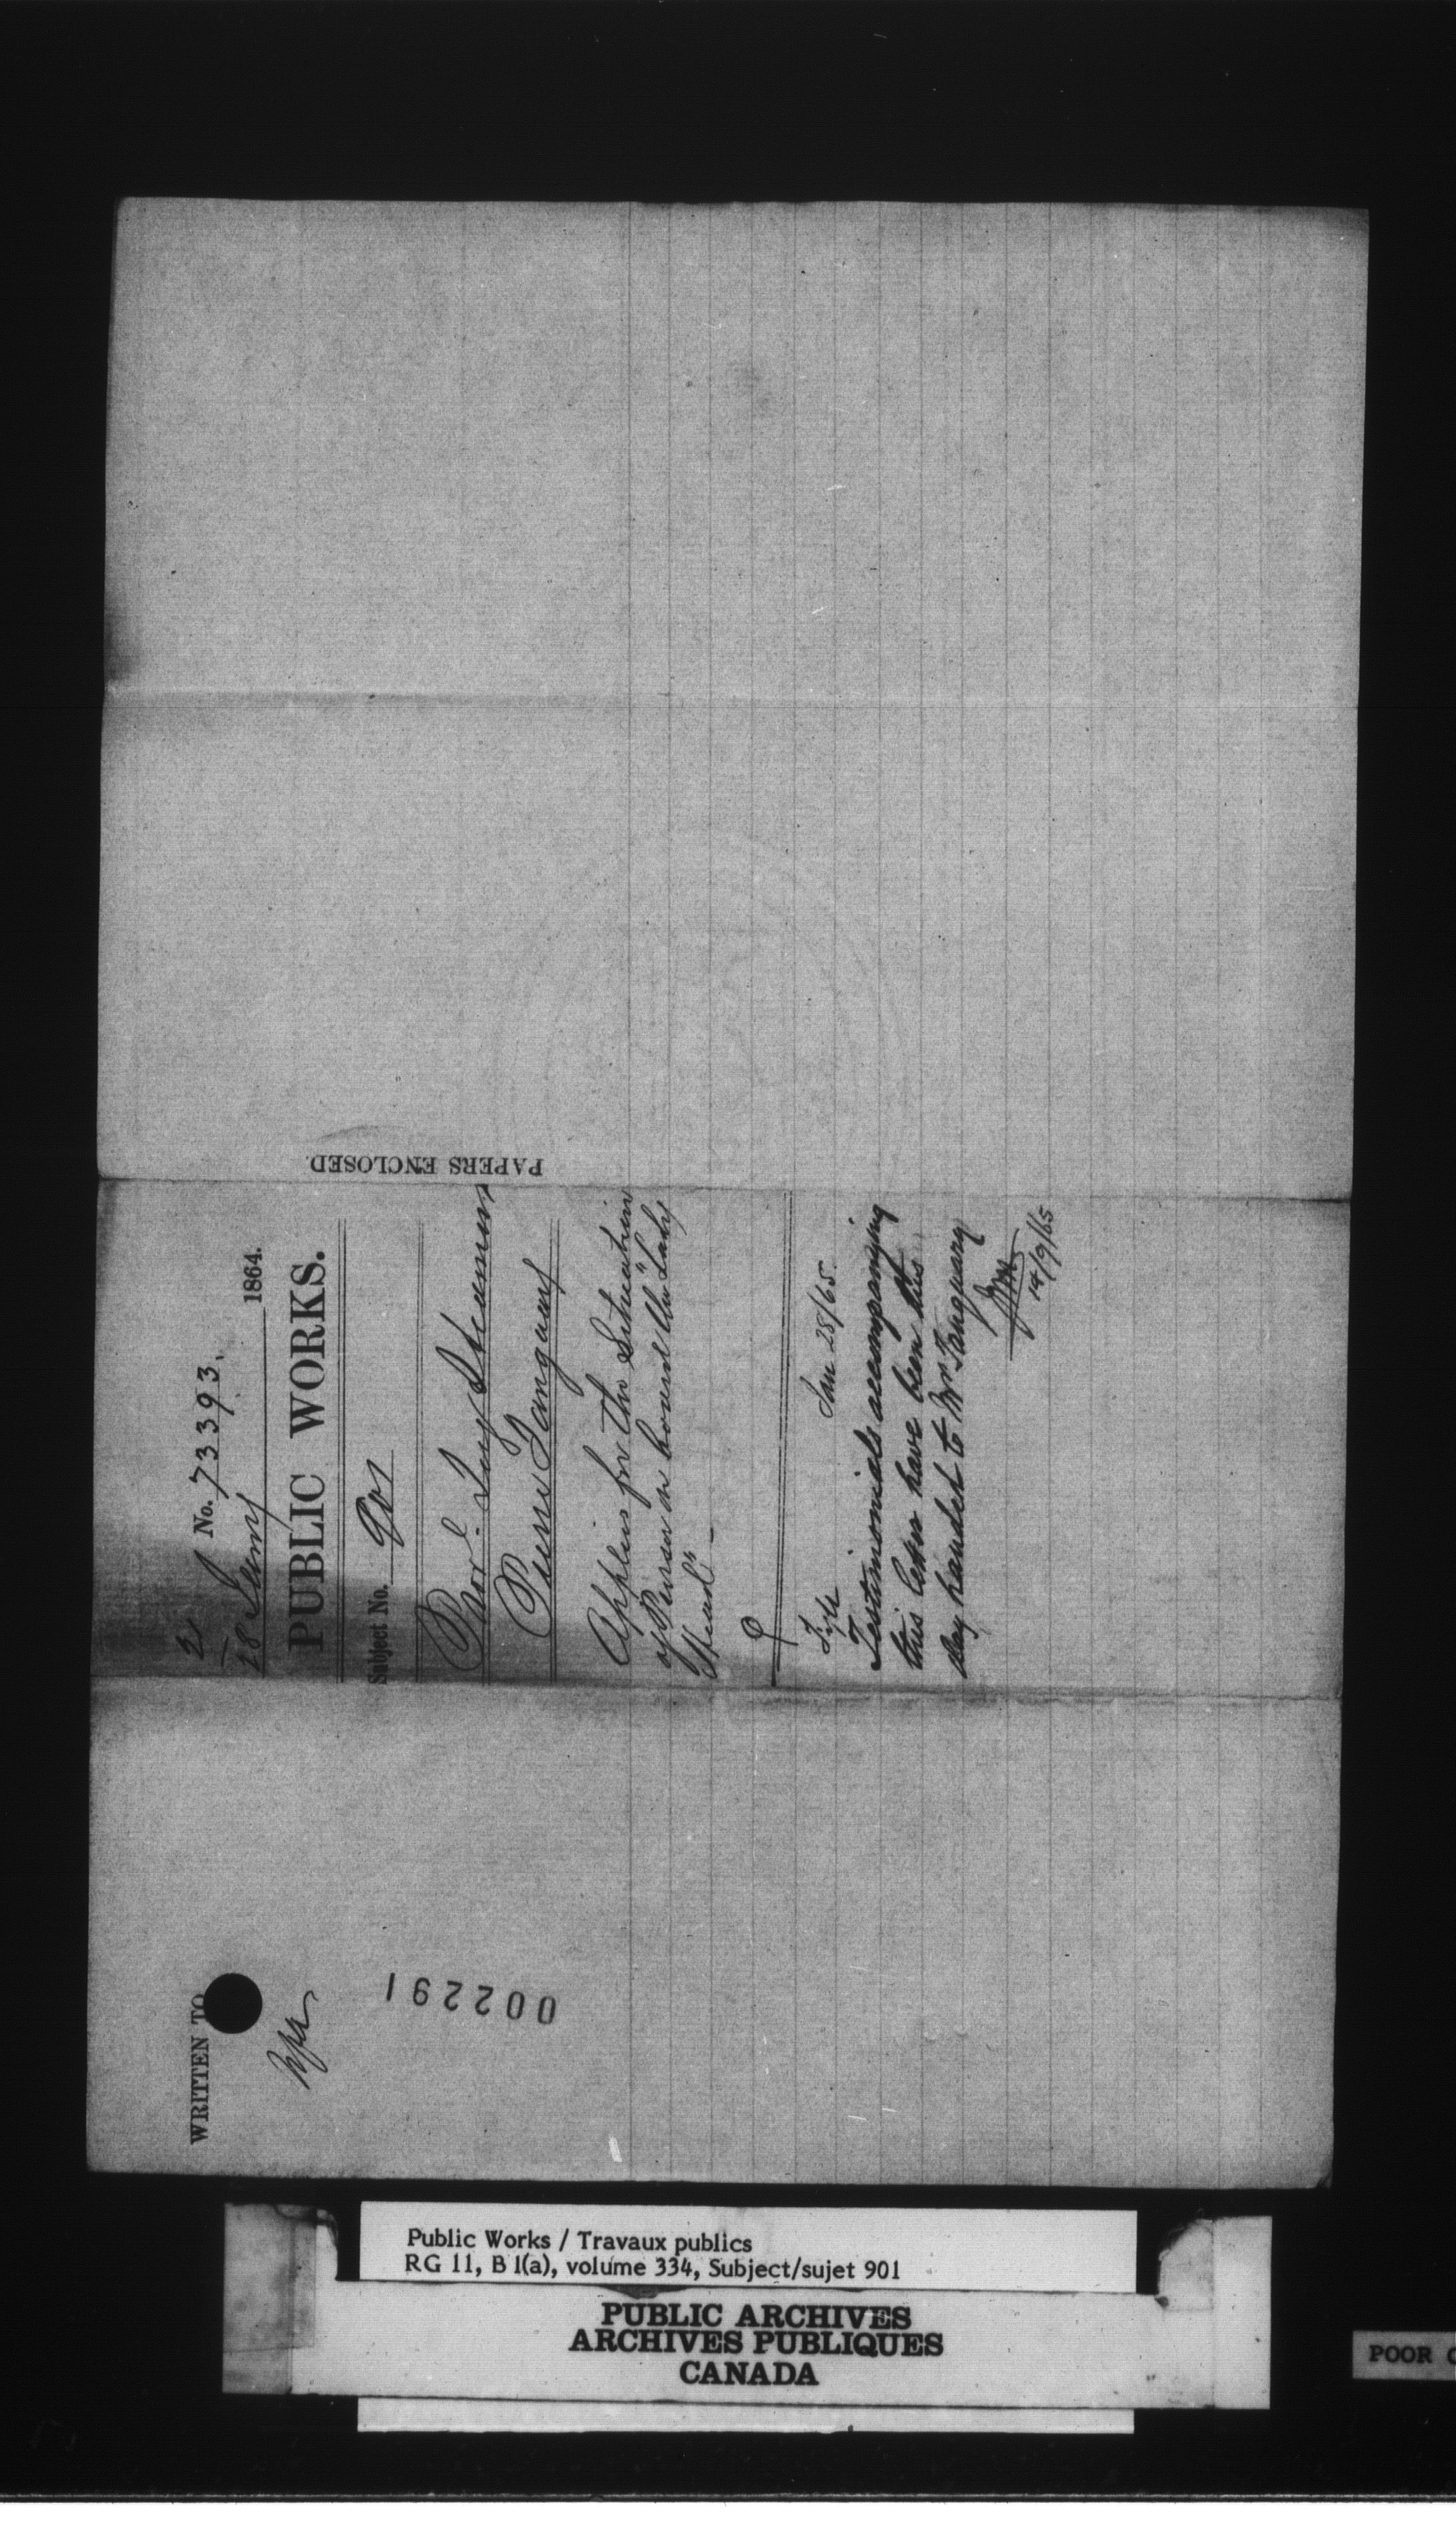 No. 73393.
28 Jany 1864.
PUBLIC WORKS.
Subject No. 901
Provl. Tug Steamers
Pierre Tanguay
Applies for the Situation
of Purser on board the "Lady
Head" -
File Jan 28/65.
Testimonials accompanying
this letter have been this
day handed to Mr Tanguay
14/9/65
PAPERS ENCLOSED.
WRITTEN TO
002291
Public Works / Travaux publics
RG 11, B 1(a), volume 334, Subject/sujet 901
PUBLIC ARCHIVES
ARCHIVES PUBLIQUES
CANADA
POOR